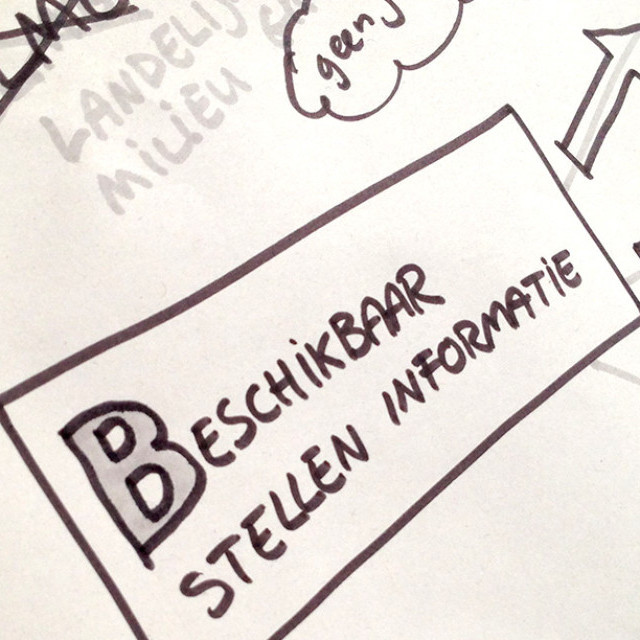 LANDELIJ
MILIEU
geen
BESCHIKBAAR
STELLEN INFORMATIE